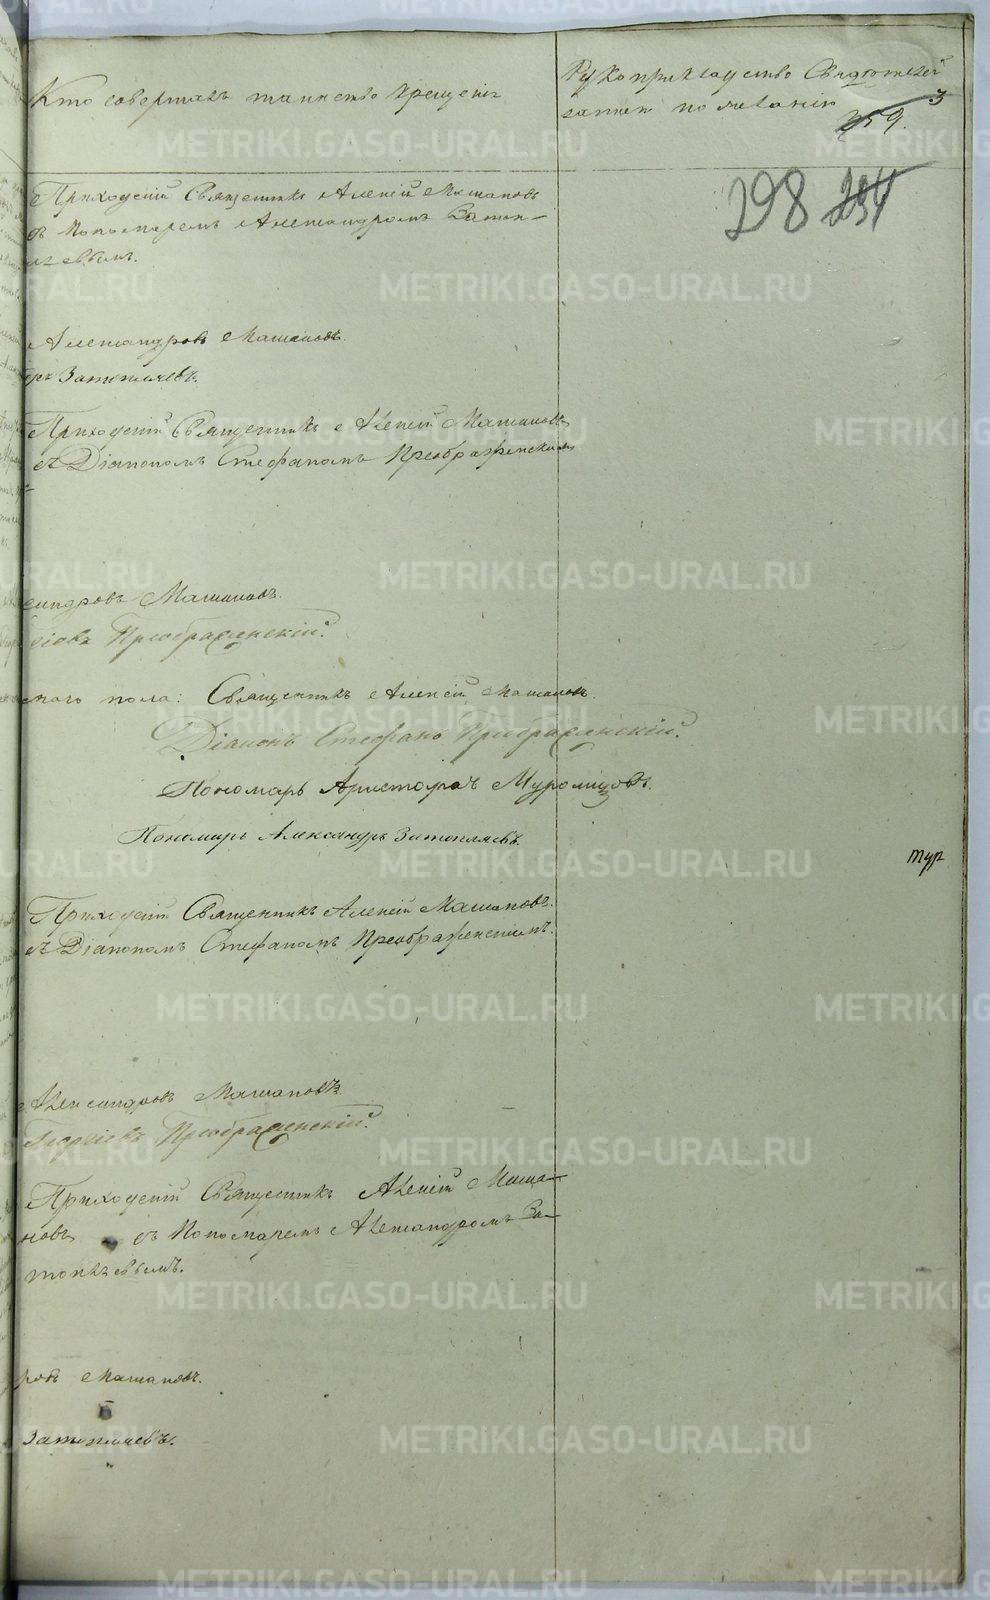 Кто совершалъ таинство крещенія
Рукоприкладство Свидѣтелей
записи по желанію
3
259.
298 234
Приходскій Священникъ Алексій Машановъ
съ Пономаремъ Александромъ Затоп-
ляевымъ.
Александровъ Машановъ.
Затопляевъ.
Приходскій Священникъ Алексій Машановъ
съ Діакономъ Стефаномъ Преображенскимъ
сандровъ Машановъ.
Преображенскій.
скаго пола: Священникъ Алексій Машановъ.
Діаконъ Стефанъ Преображенскій.
Пономарь Аристархъ Муромцовъ.
Пономарь Александръ Затопляевъ.
тур
Приходскій Священникъ Алексій Машановъ.
съ Діакономъ Стефаномъ Преображенскимъ.
Александровъ Машановъ
Преображенскій.
Приходскій Священникъ Алексій Маша-
новъ съ Пономаремъ Александромъ За-
топляевымъ.
ровъ Машановъ.
Затопляевъ.
METRIKI.GASO-URAL.RU